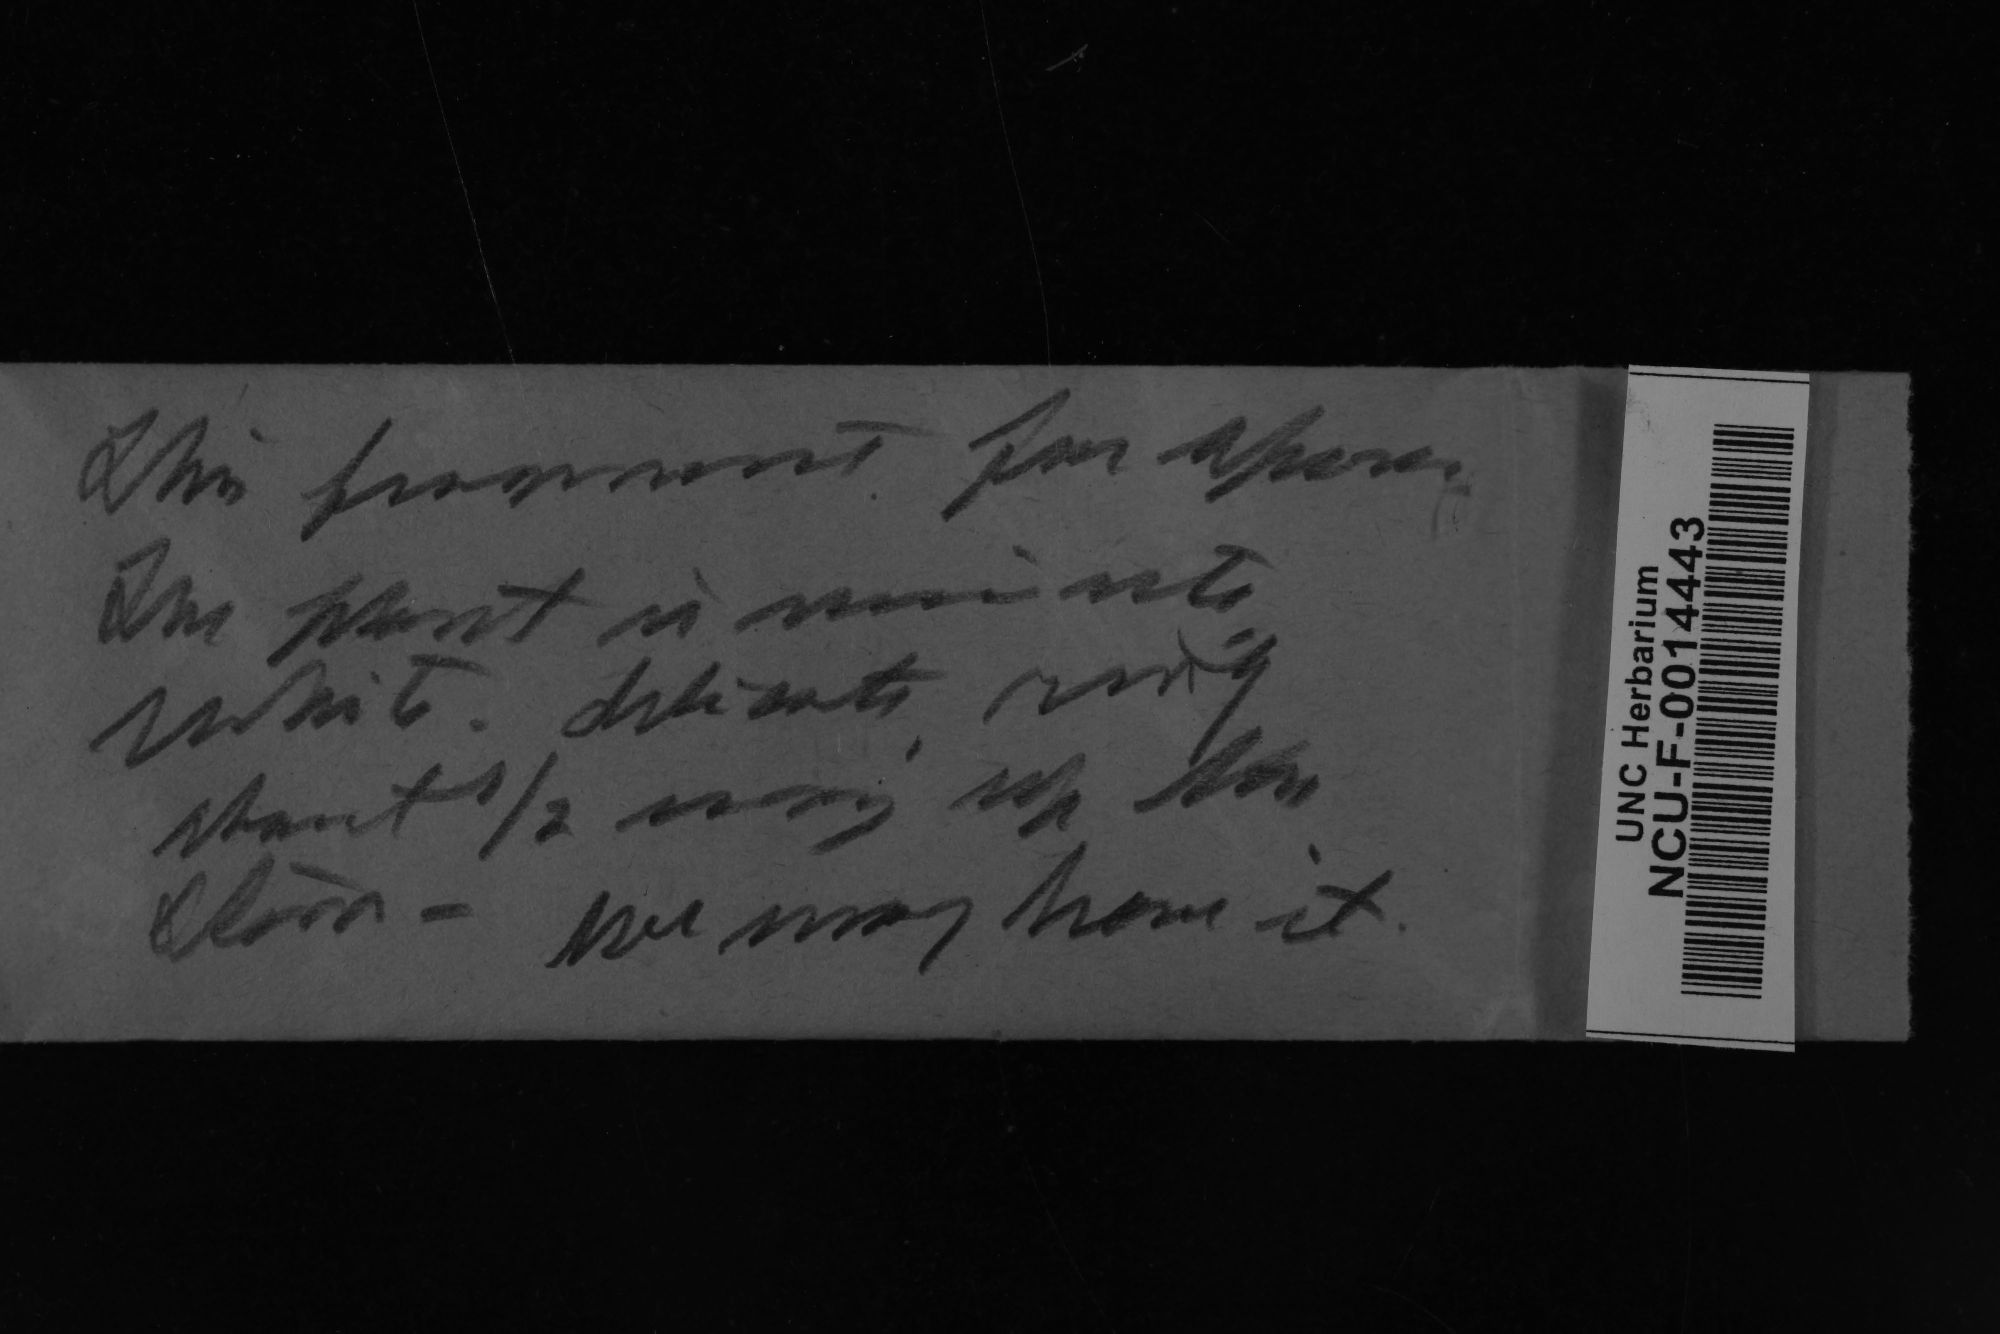 This fragment for spores
The plant is minute
white. delicate, ring
about 1/2 way up the
stem - we may have it.
UNC Herbarium
NCU-F-0014443